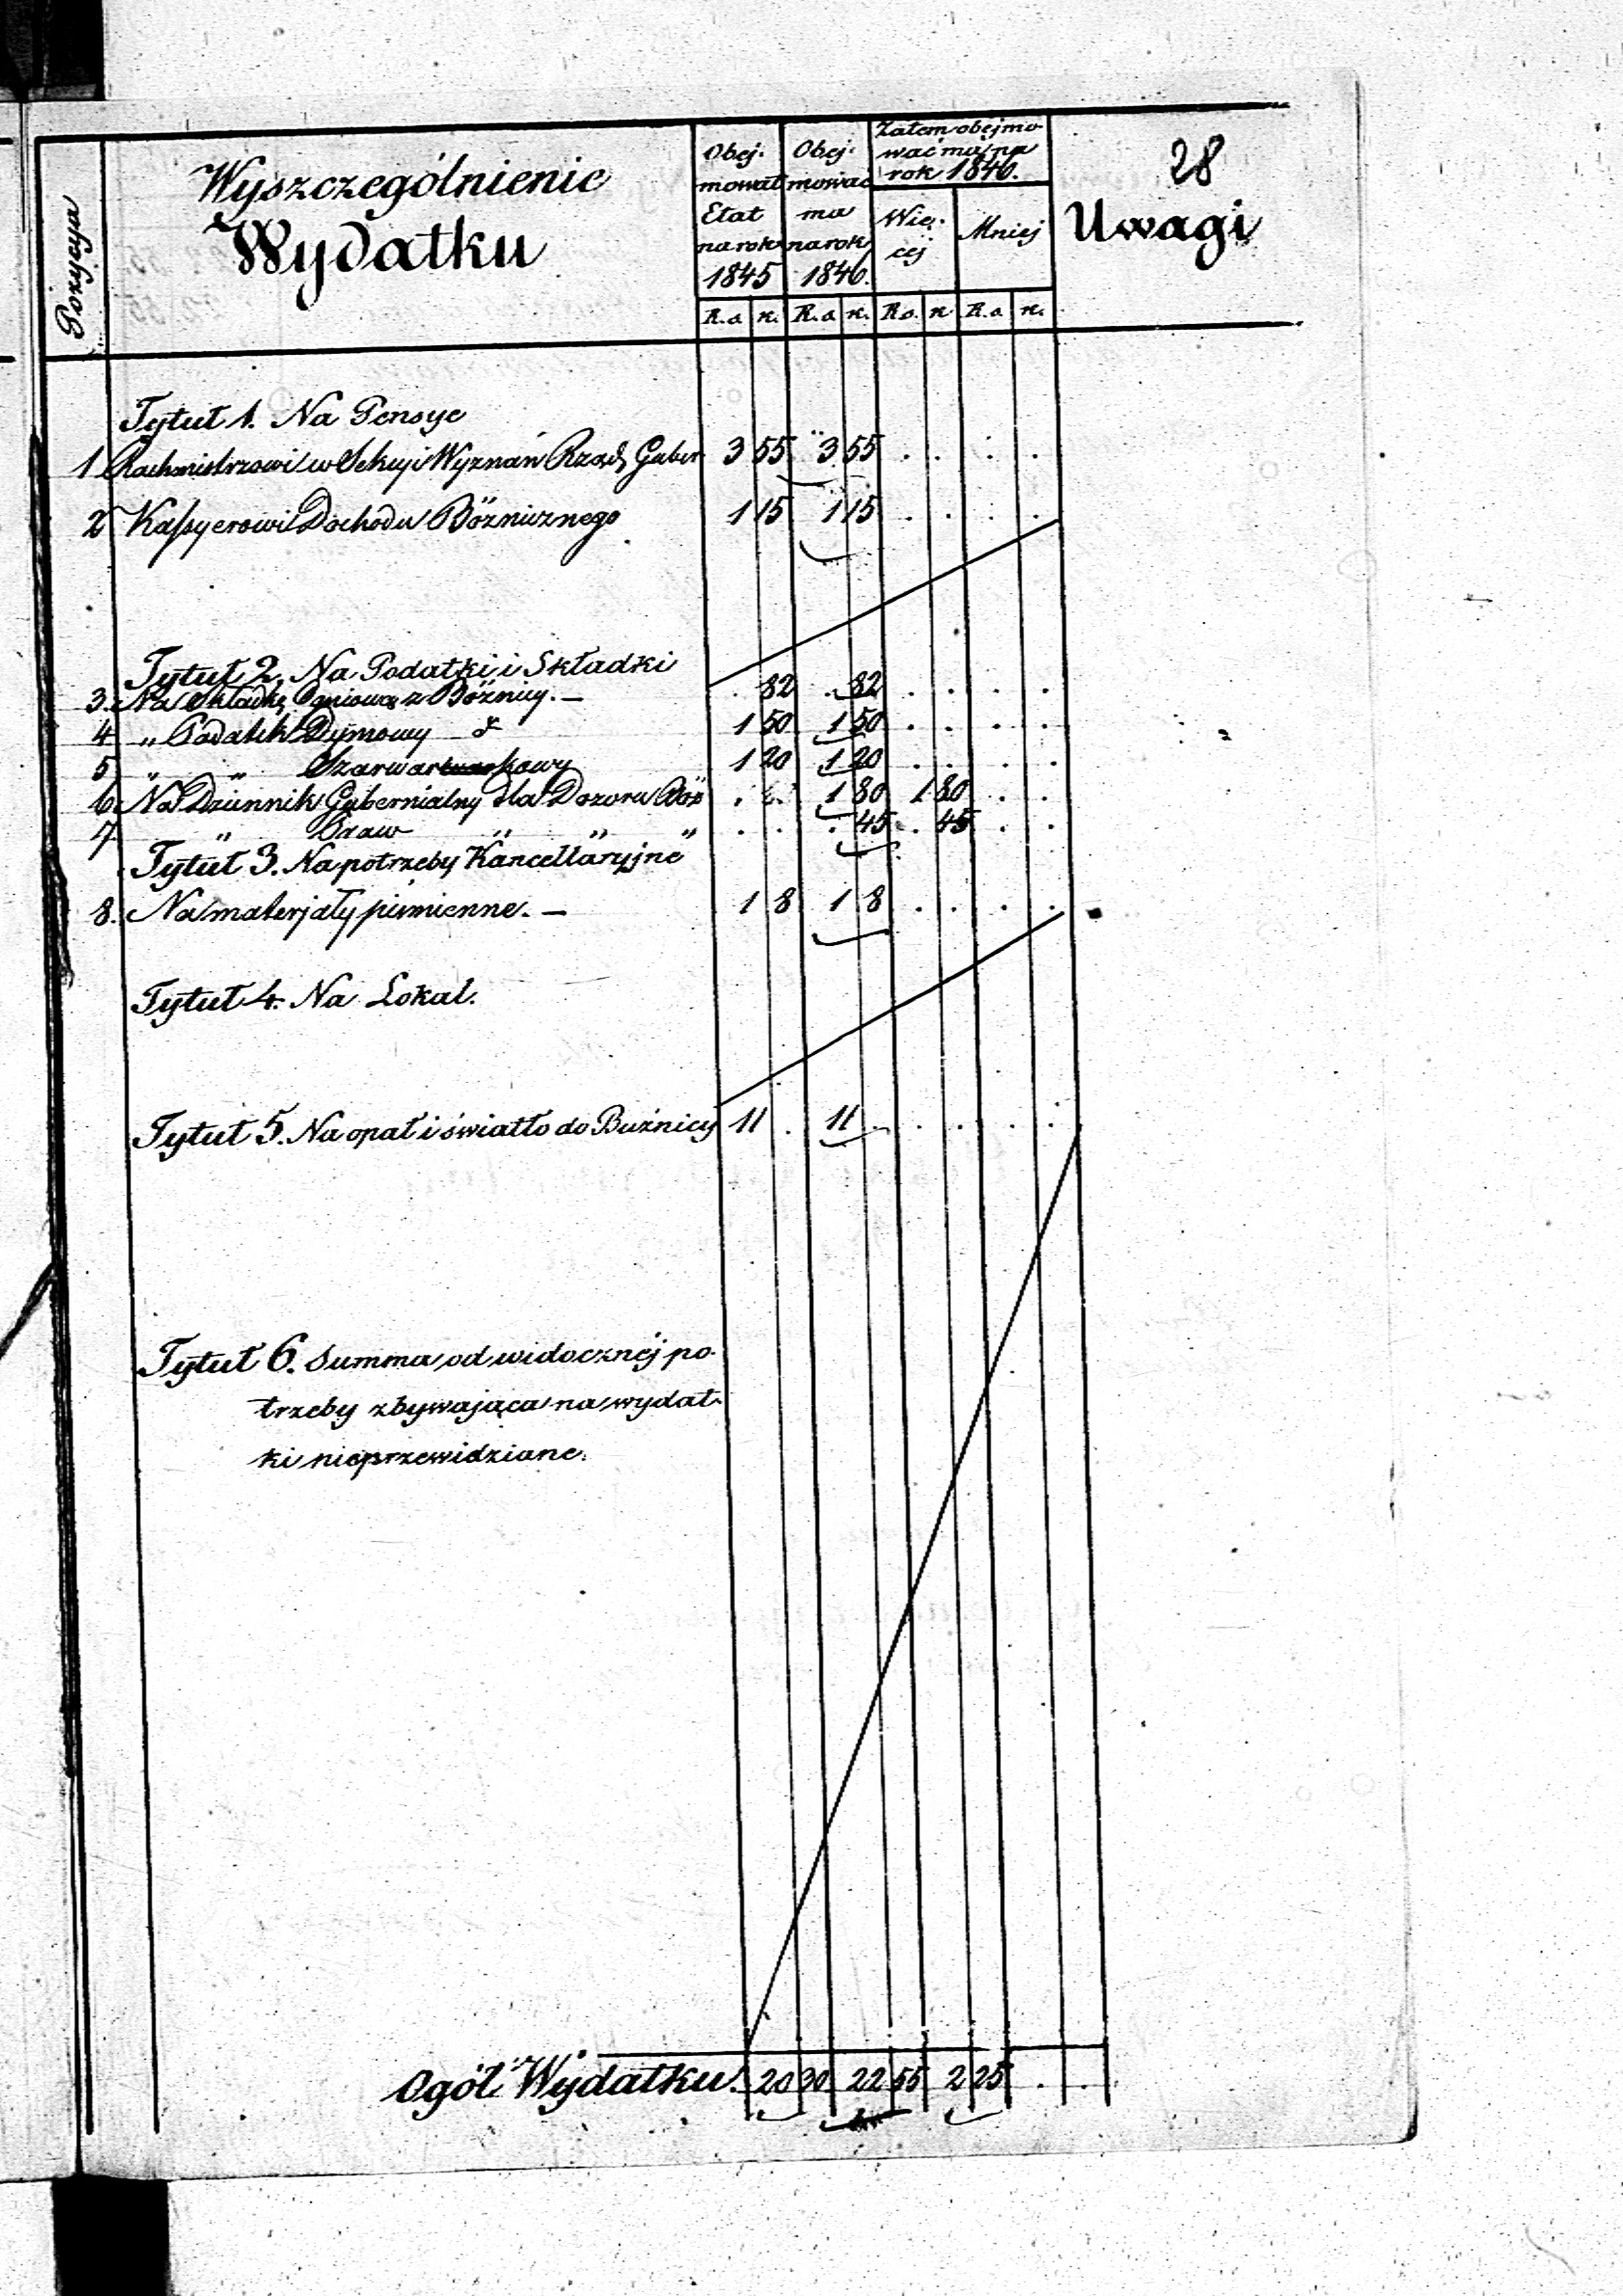 28
Pozycya
Wyszczególnienie
Wydatku
Obej-
mował
Etat
na rok
1845
Obej-
mować
ma
na rok
1846.
Zatem obejmo-
wać ma na
rok 1846.
Wię-
cej
Mniej
Uwagi
R.s k. R.s k. R.s. k R.s k.
Tytuł 1. Na Pensye
1 Rachmistrzowi w Sekcyi Wyznań Rząd. Guber 3 55 3 55 . . . .
2 Kassyerowi Dochodu Bóżnicznego 1 15 1 15 . . . .
Tytuł 2. Na Podatki i Składki
3. Na Składkę Ogniową z Bóżnicy. — . 82 . 82 . . . .
4 „ Podatek Dymowy 1 50 1 50 . . . .
5 „ „ Szarwarkowy 1 20 1 20 . . . .
6 Na Dziennik Gubernialny dla Dozoru Bóż . . 1 80 1 80 . .
7 „ Praw „ „ „ . . . 45 . 45 . .
Tytuł 3. Na potrzeby Kancellaryjne
8. Na materjały piśmienne. — 1 8 1 8 . . . .
Tytuł 4. Na Lokal.
Tytuł 5. Na opał i światło do Buźnicy 11 . 11 . . . . .
Tytuł 6. Summa od widocznéj po-
trzeby zbywająca na wydat-
ki nieprzewidziane.
Ogół Wydatku. 20 30 22 55 2 25 . .